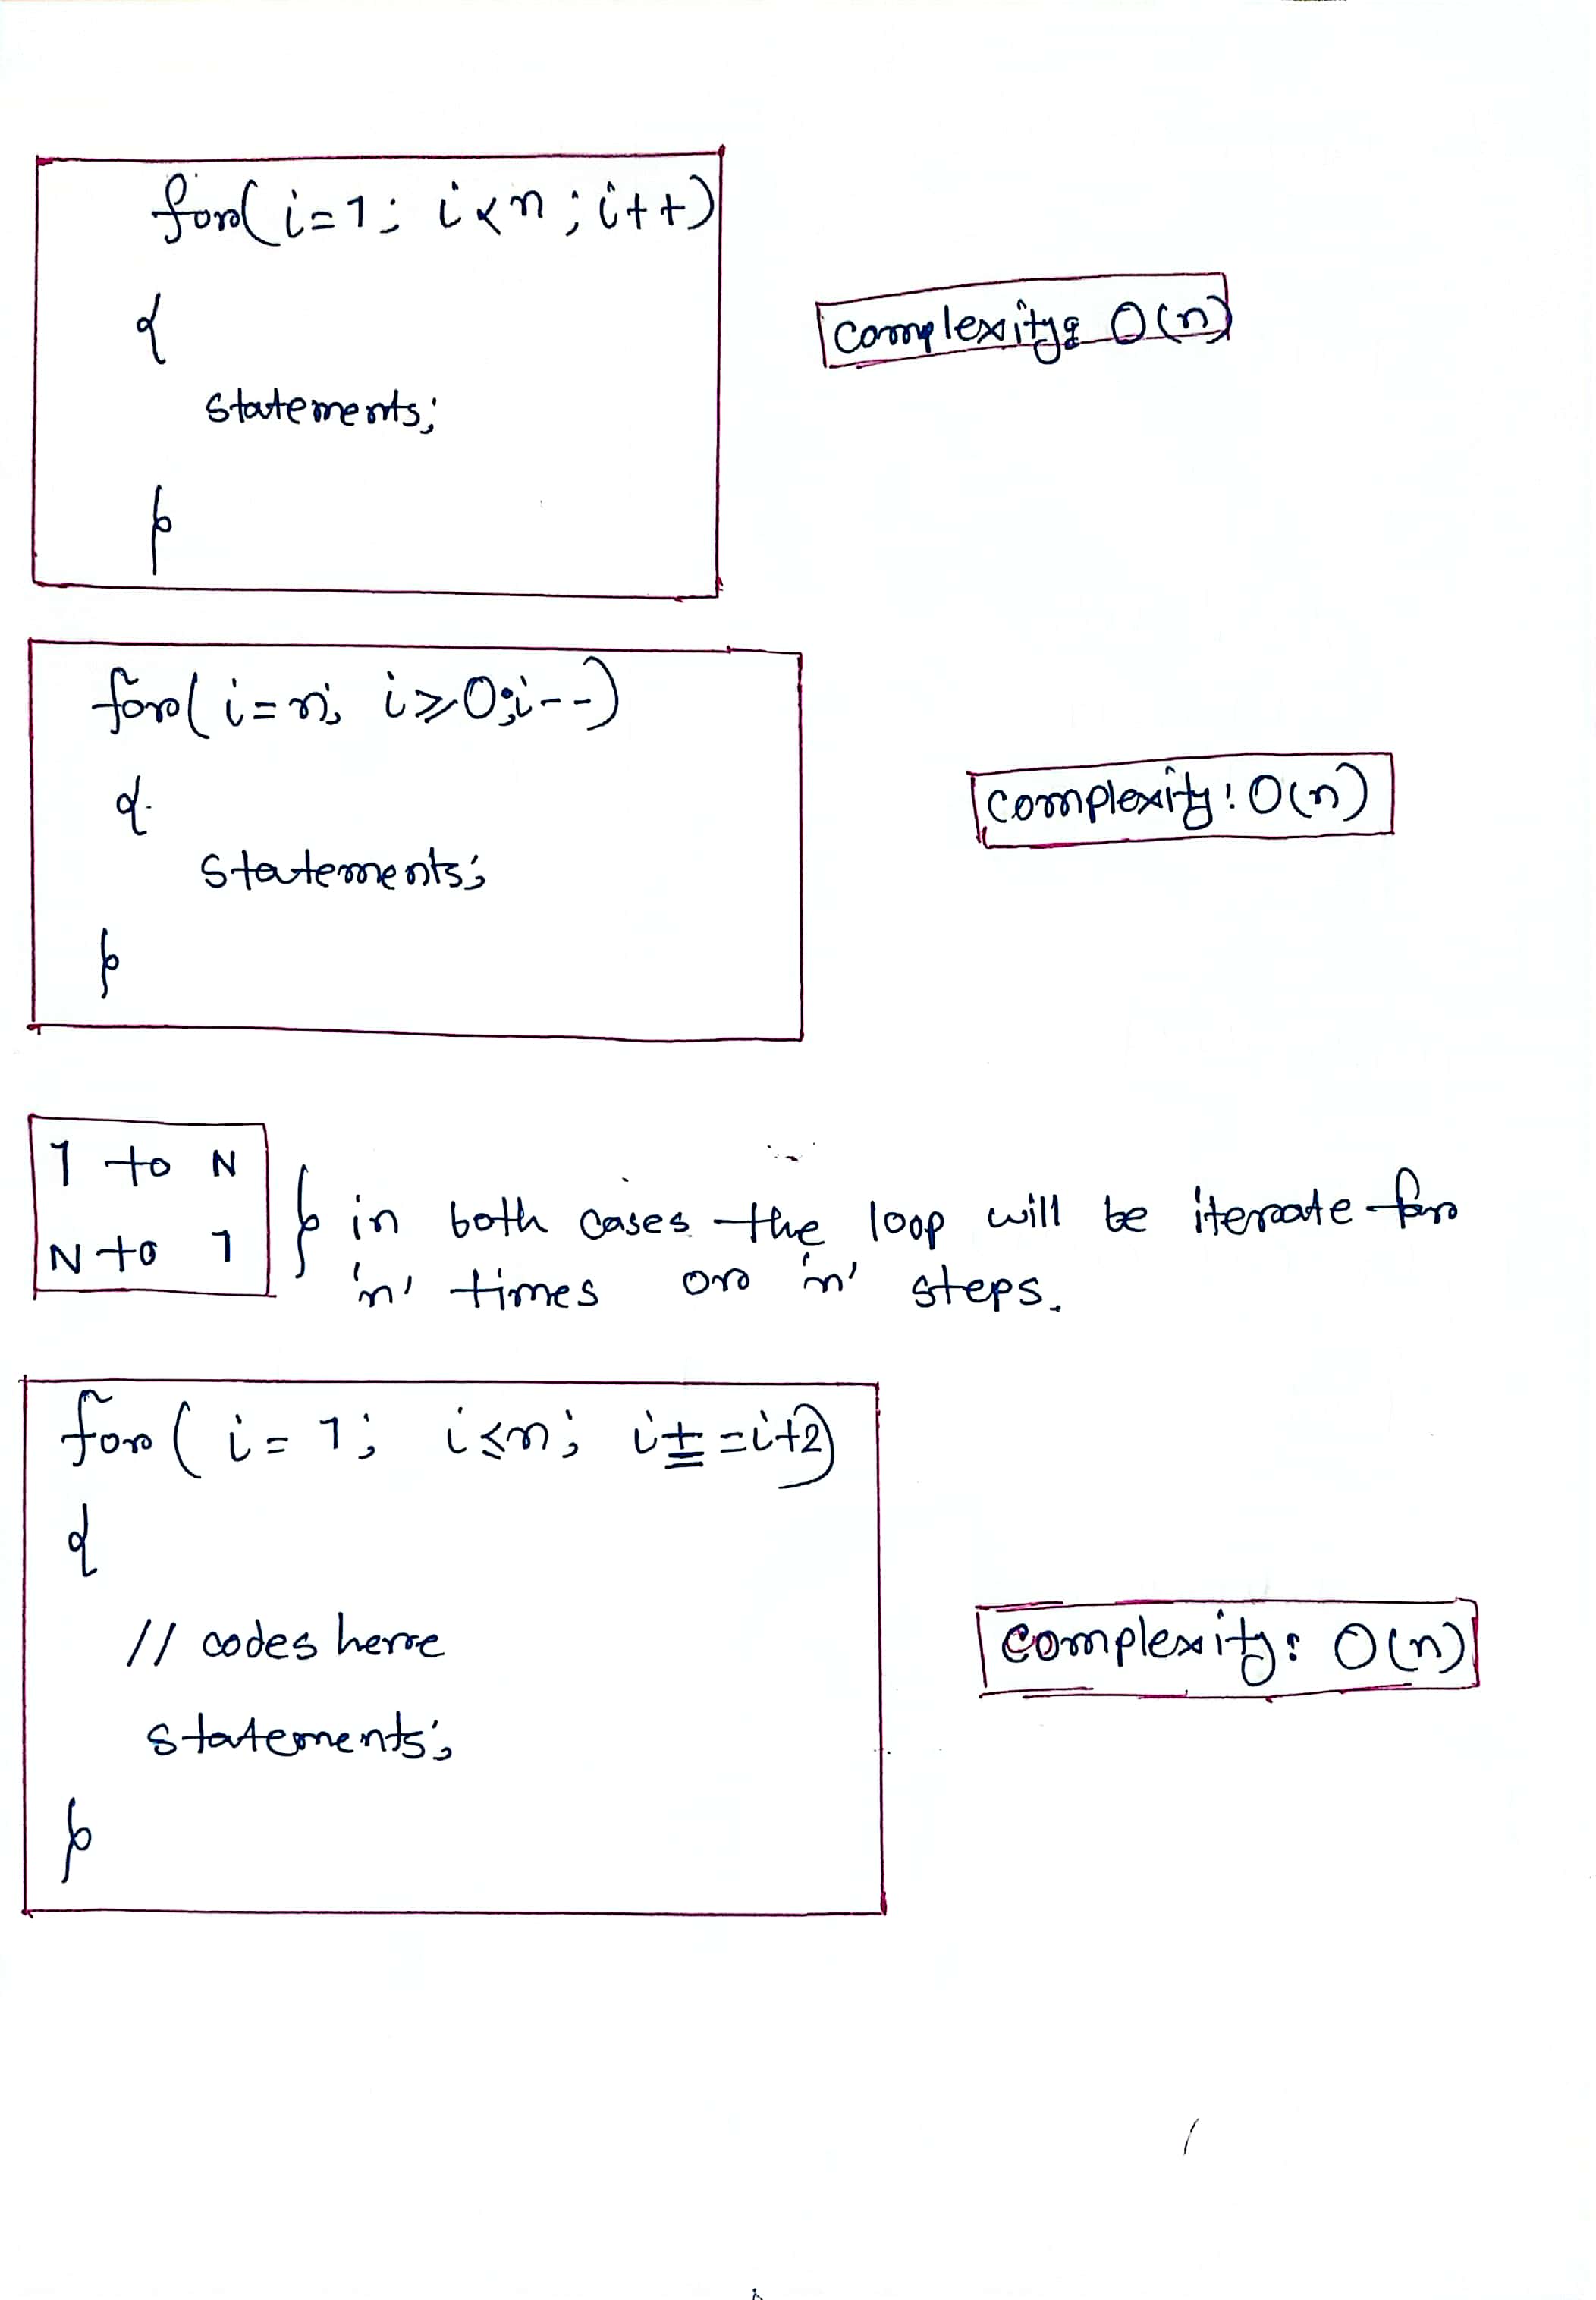 for( i=1; i<n ; i++)
{
statements;
}
complexity: O(n)
for( i=n; i≥0;i--)
{
statements;
}
complexity: O(n)
1 to N
N to 1
} in both cases the loop will be iterate for
'n' times or 'n' steps.
for ( i = 1; i≤n; i+ =i+2)
{
// codes here
statements;
}
complexity: O(n)